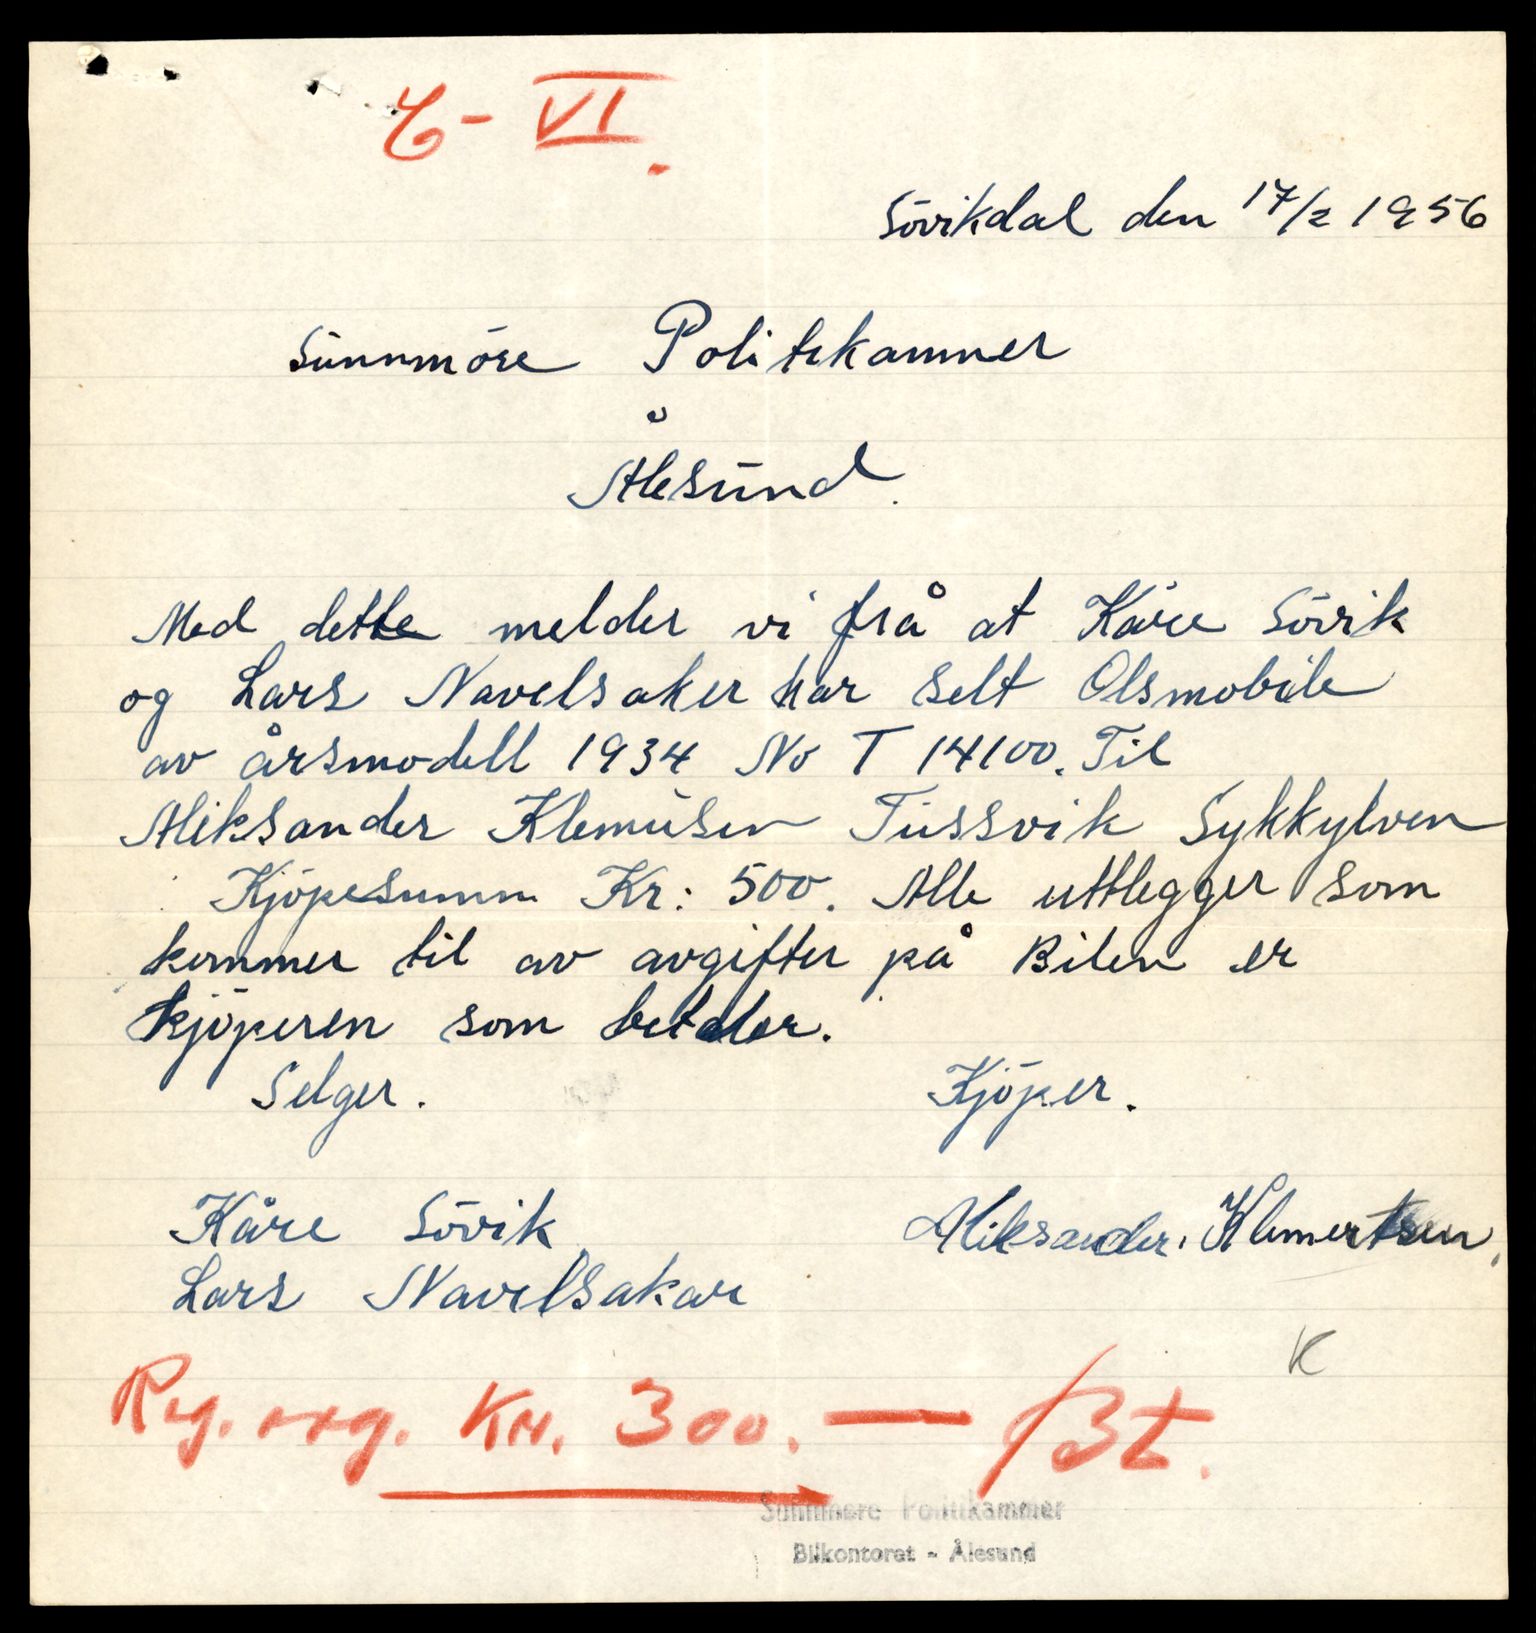 C- VI.
Sövikdal den 17/2 1956
Sünnmöre Politikammer
Ålesünd.
Med dette melder vi frå at Kåre Sövik
og Lars Navelsaker har selt Olsmobile
av årsmodell 1934 No T 14100. Til
Aliksander Klemüsen Tüssvik Sykkylven
Kjöpesumm Kr: 500. Alle uttlegger som
kommer til av avgifter på Bilen er
kjöperen som betaler.
Selger. Kjöper.
Kåre Sövik Aliksander. Klemertsen.
Lars Navelsaker
K
Reg. avg. Kr. 300. — Bt.
Sunnmøre Politikammer
Bilkontoret - Ålesund